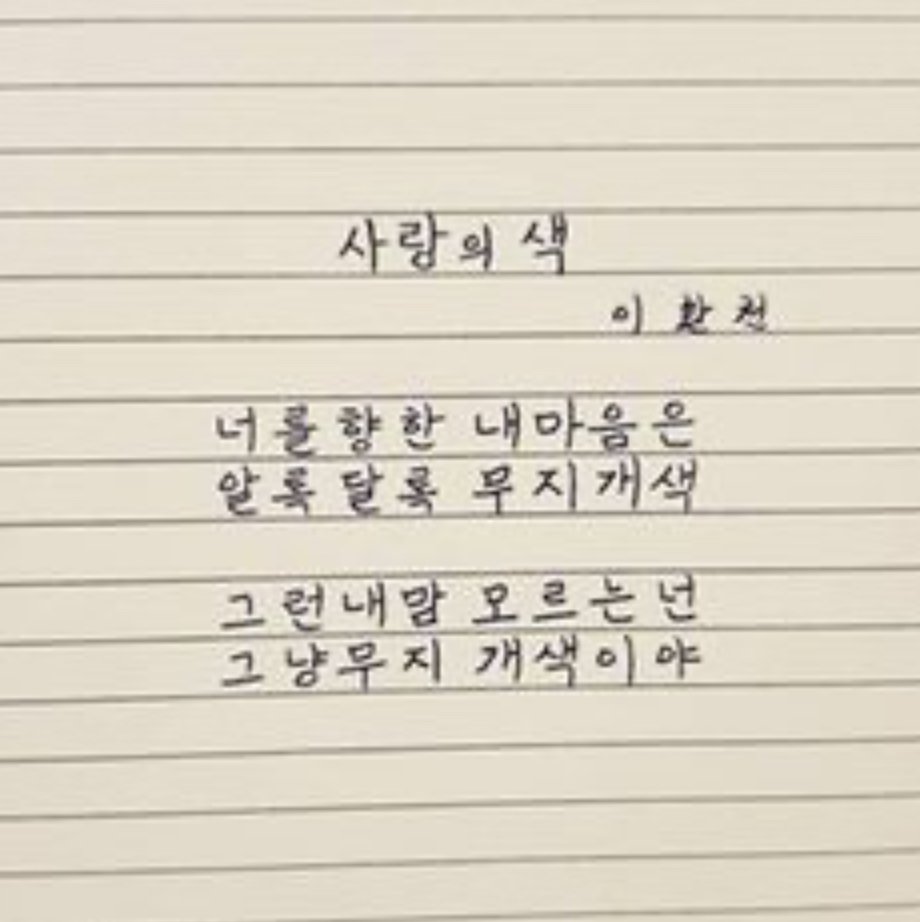 사랑의 색
이 환 천
너를향한 내마음은
알록달록 무지개색
그런내맘 모르는넌
그냥무지 개색이야